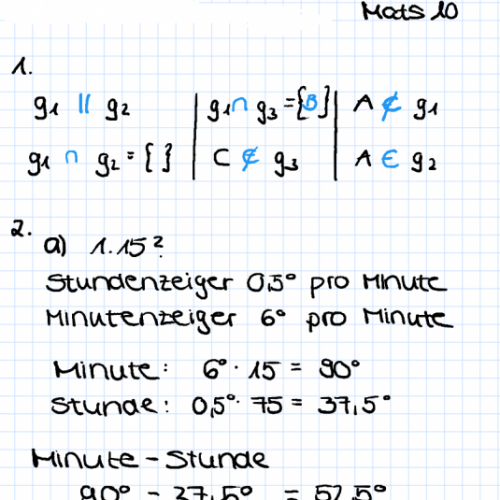 Mats 10
1.
g1 || g2 | g1 ∩ g3 = {B} | A ∉ g1
g1 ∩ g2 = { } | C ∉ g3 | A ∈ g2
2.
a) 1.15?
Stundenzeiger 0,5° pro Minute
Minutenzeiger 6° pro Minute
Minute: 6° · 15 = 90°
Stunde: 0,5° · 75 = 37,5°
Minute - Stunde
90° - 37,5° = 52,5°